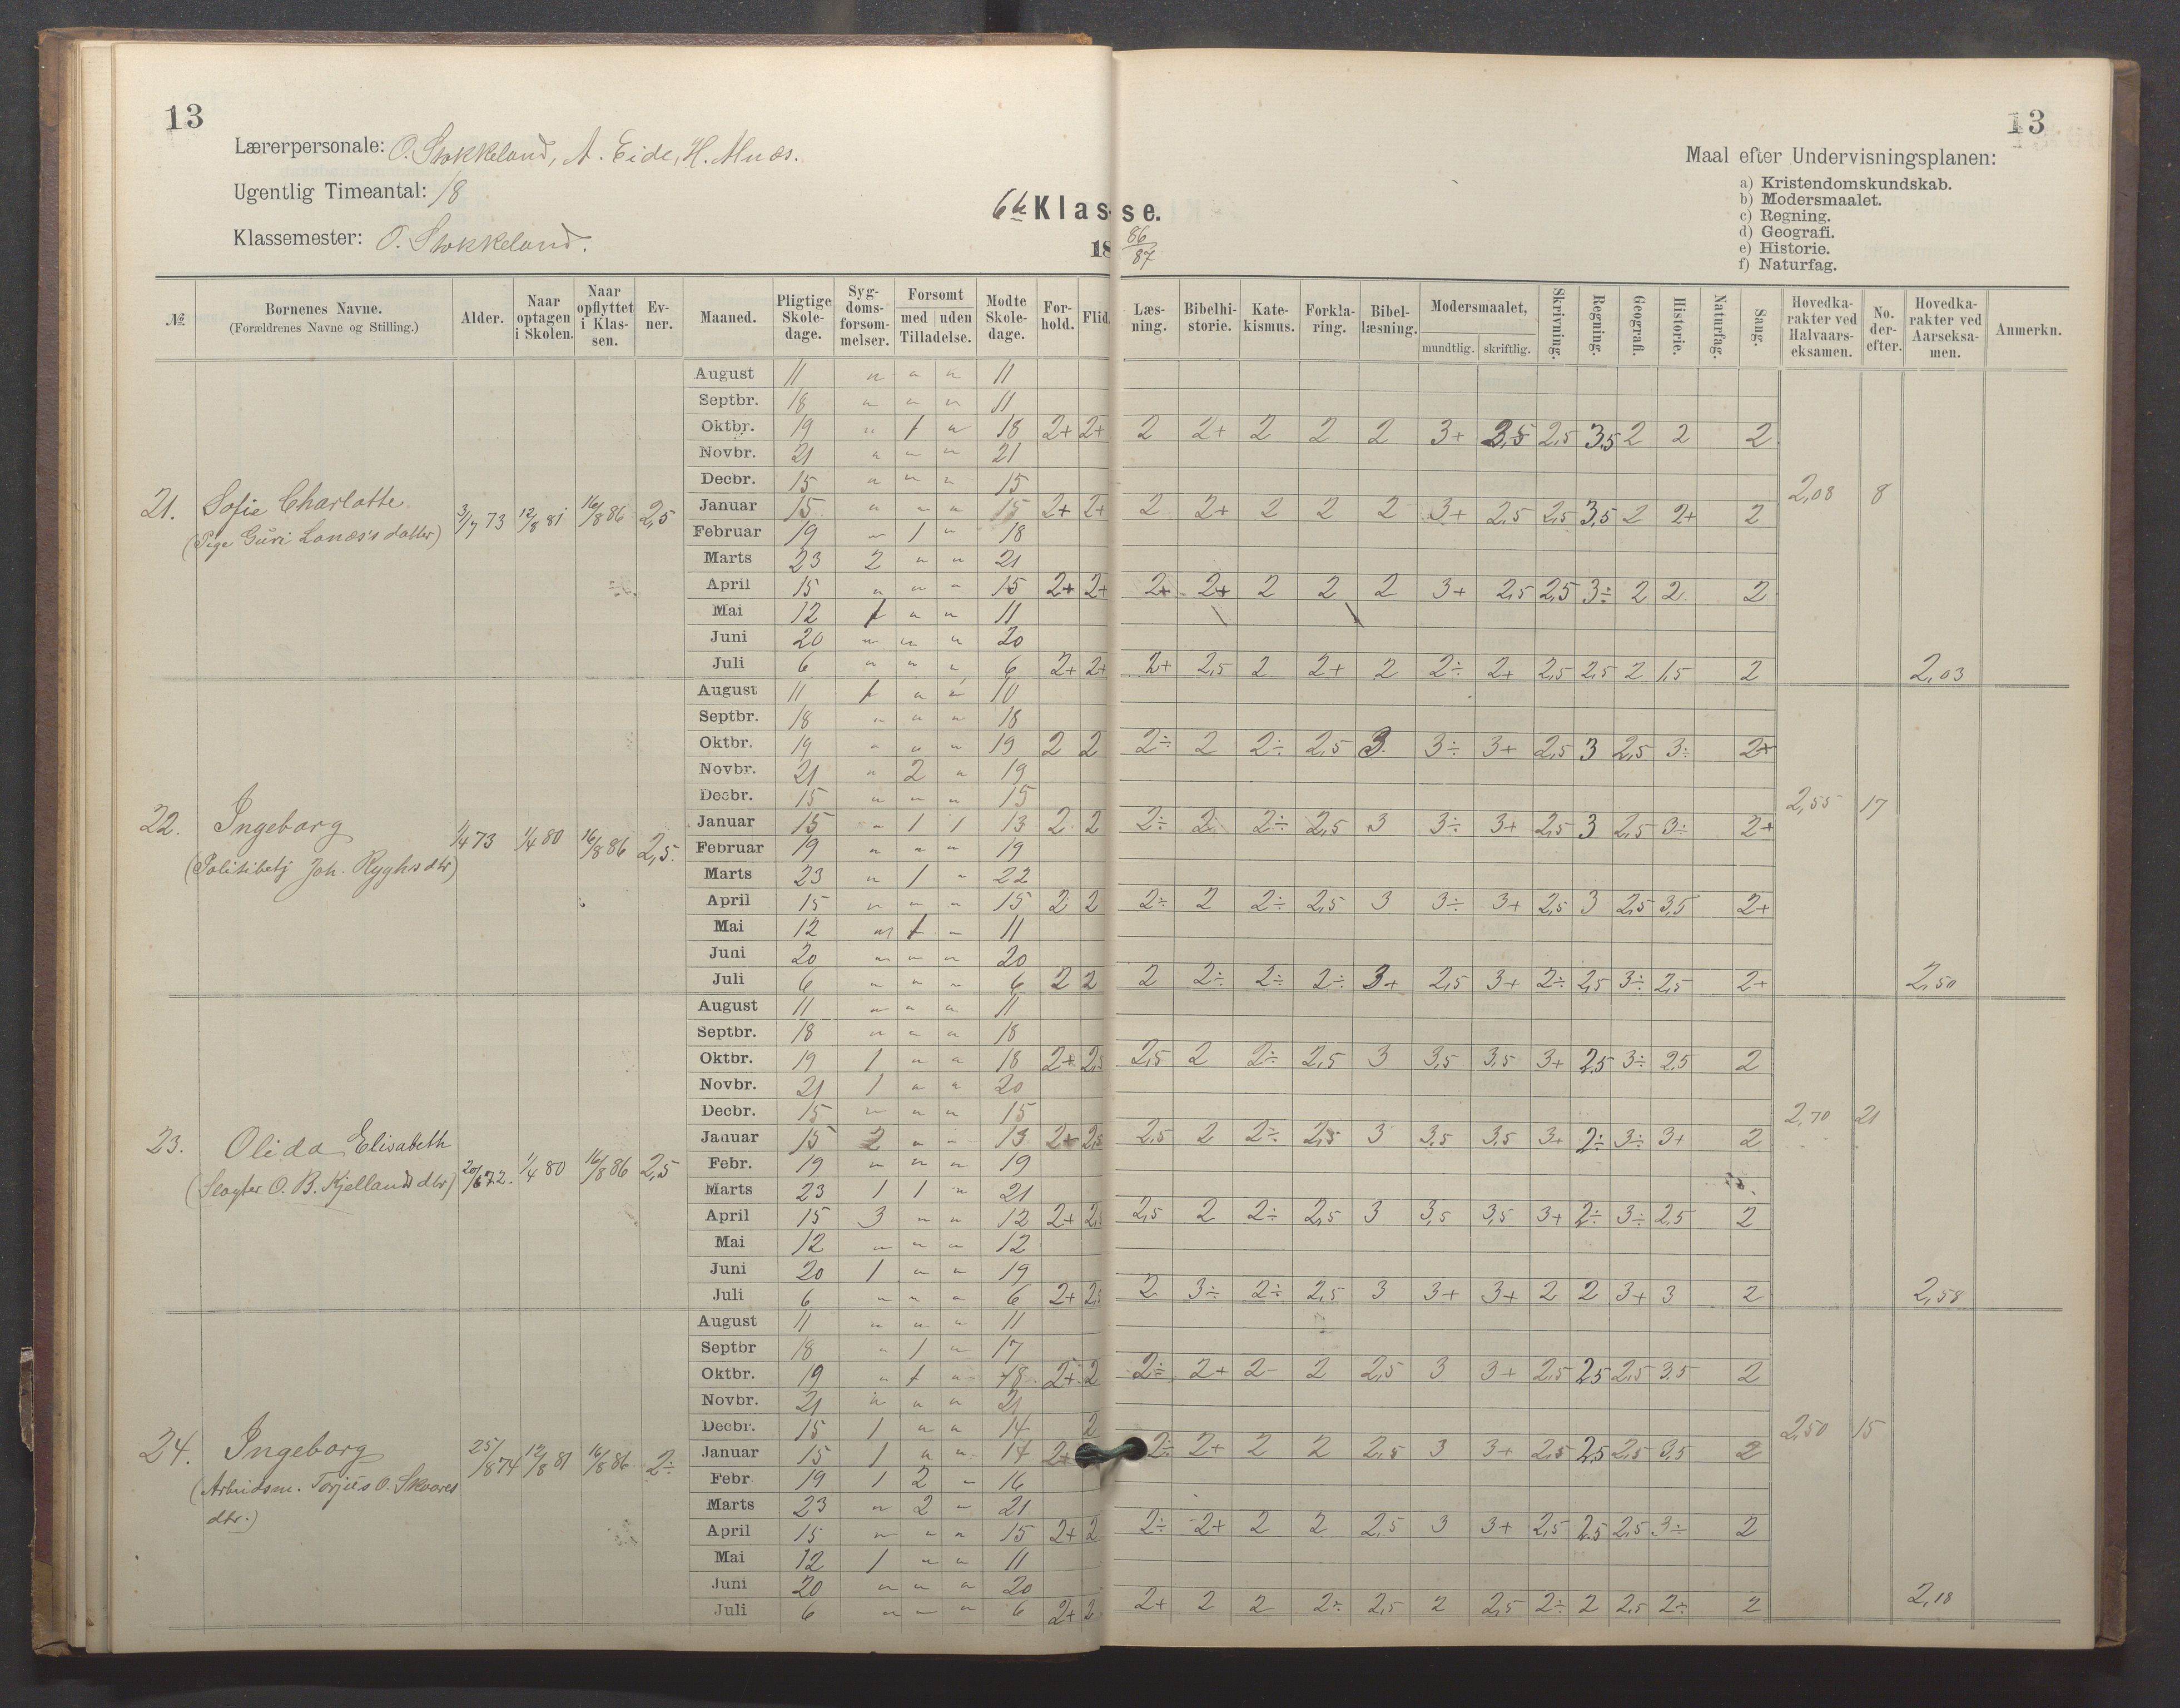 13
13
Lærerpersonale: O. Stokkeland, A. Eide, H. Alnæs.
Ugentlig Timeantal: 18
Klassemester: O. Stokkeland.
6te Klasse.
18 86/87
Maal efter Undervisningsplanen:
a) Kristendomskundskab.
b) Modersmaalet.
c) Regning.
d) Geografi.
e) Historie.
f) Naturfag.
№ Børnenes Navne. (Forældrenes Navne og Stilling.) Alder. Naar optagen i Skolen. Naar opflyttet i Klassen. Evner. Maaned. Pligtige Skoledage. Sygdomsforsømmelser. Forsømt med uden Tilladelse. Mødte Skoledage. Forhold. Flid. Læsning. Bibelhistorie. Katekismus. Forklaring. Bibellæsning. Modersmaalet, mundtlig. skriftlig. Skrivning. Regning. Geografi. Historie. Naturfag. Sang. Hovedkarakter ved Halvaarseksamen. No. derefter. Hovedkarakter ved Aarseksamen. Anmerkn.
August 11 " " " 11
Septbr. 18 " " " 11
Oktbr. 19 " 1 " 18 2+ 2+ 2 2+ 2 2 2 3+ 3,5 2,5 3,5 2 2 2
Novbr. 21 " " " 21
Decbr. 15 " " " 15
21. Sofie Charlotte 3/7 73 12/8 81 16/8 86 2,5 Januar 15 " " " 15 2+ 2+ 2 2+ 2 2 2 3+ 2,5 2,5 3,5 2 2+ 2 2,08 8
(Pige Guri Lonæs's datter) Februar 19 " 1 " 18
Marts 23 2 " " 21
April 15 " " " 15 2+ 2+ 2+ 2+ 2 2 2 3+ 2,5 2,5 3÷ 2 2 2
Mai 12 1 " " 11
Juni 20 " " " 20
Juli 6 " " " 6 2+ 2+ 2+ 2,5 2 2+ 2 2÷ 2+ 2,5 2,5 2 1,5 2 2,03
August 11 1 " " 10
Septbr. 18 " " " 18
Oktbr. 19 " " " 19 2 2 2÷ 2 2÷ 2,5 3 3÷ 3+ 2,5 3 2,5 3÷ 2+
Novbr. 21 " 2 " 19
Decbr. 15 " " " 15
22. Ingeborg 1/4 73 1/4 80 16/8 86 2,5. Januar 15 " 1 1 13 2 2 2÷ 2 2÷ 2,5 3 3÷ 3+ 2,5 3 2,5 3÷ 2+ 2,55 17
(Politibetj Joh. Ryghs dtr) Februar 19 " " " 19
Marts 23 " 1 " 22
April 15 " " " 15 2 2 2÷ 2 2÷ 2,5 3 3÷ 3+ 2,5 3 2,5 3,5 2+
Mai 12 " 1 " 11
Juni 20 " " " 20
Juli 6 " " " 6 2 2 2 2÷ 2÷ 2÷ 3+ 2,5 3+ 2÷ 2,5 3÷ 2,5 2+ 2,50
August 11 " " " 11
Septbr. 18 " " " 18
Oktbr. 19 1 " " 18 2+ 2,5 2,5 2 2÷ 2,5 3 3,5 3,5 3+ 2,5 3÷ 2,5 2
Novbr. 21 1 " " 20
Decbr. 15 " " " 15
23. Olida Elisabeth 20/6 72. 1/4 80 16/8 86 2,5 Januar 15 2 " " 13 2+ 2,5 2,5 2 2÷ 2,5 3 3,5 3,5 3+ 2÷ 3÷ 3+ 2 2,70 21
(Slagter O. B. Kjellands dtr) Febr. 19 " " " 19
Marts 23 1 1 " 21
April 15 3 " " 12 2+ 2,5 2,5 2 2÷ 2,5 3 3,5 3,5 3+ 2÷ 3÷ 2,5 2
Mai 12 " " " 12
Juni 20 1 " " 19
Juli 6 " " " 6 2+ 2,5 2 3÷ 2÷ 2,5 3 3+ 3+ 2 2 3+ 3 2 2,58
August 11 " " " 11
Septbr 18 " 1 " 17
Oktbr. 19 " 1 " 18 2+ 2 2÷ 2+ 2- 2 2,5 3 3+ 2,5 2,5 2,5 3,5 2
Novbr. 21 " " " 21
Decbr. 15 1 " " 14 2
24. Ingeborg 25/8 74 12/8 81 16/8 86 2÷ Januar 15 1 " " 14 2+ 2÷ 2+ 2 2 2,5 3 3+ 2,5 2,5 2,5 3,5 2 2,50 15
(Arbeidsm. Torjus O. Skværes dtr.) Febr 19 1 2 " 16
Marts 23 " 2 " 21
April 15 " " " 15 2+ 2 2÷ 2+ 2 2 2,5 3 3+ 2,5 2,5 2,5 3÷ 2
Mai 12 1 " " 11
Juni 20 " " " 20
Juli 6 " " " 6 2+ 2 2+ 2 2 2÷ 2,5 2 2,5 2÷ 2 2,5 2÷ 2 2,18